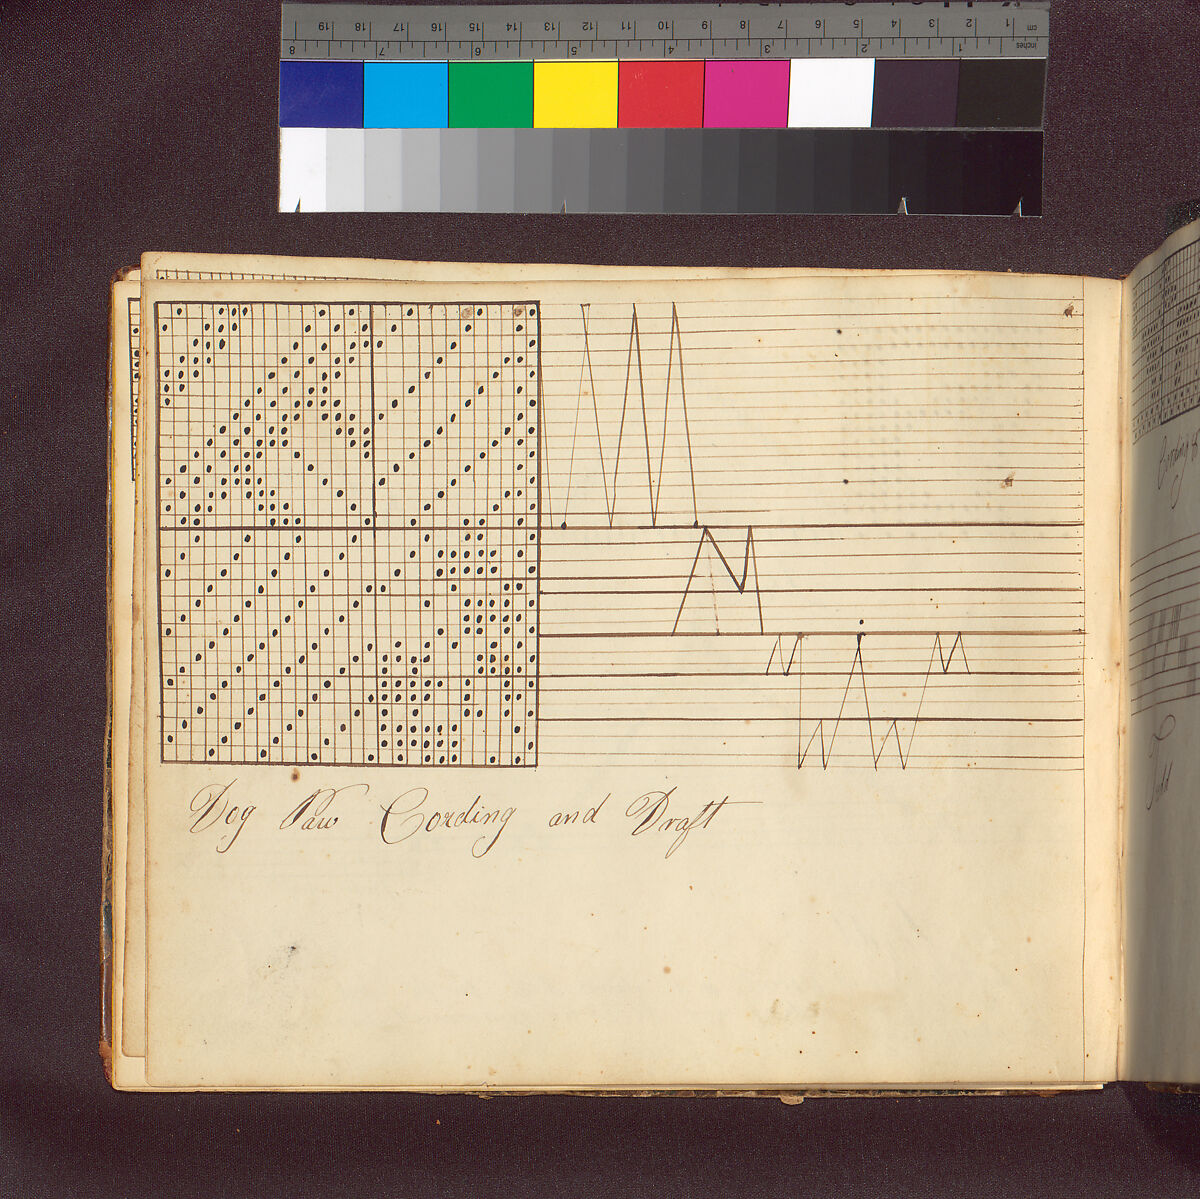 19 18 17 16 15 14 13 12 11 10 9 8 7 6 5 4 3 2 1 cm
8 7 6 5 4 3 2 1 inches
Dog Paw Cording and Draft